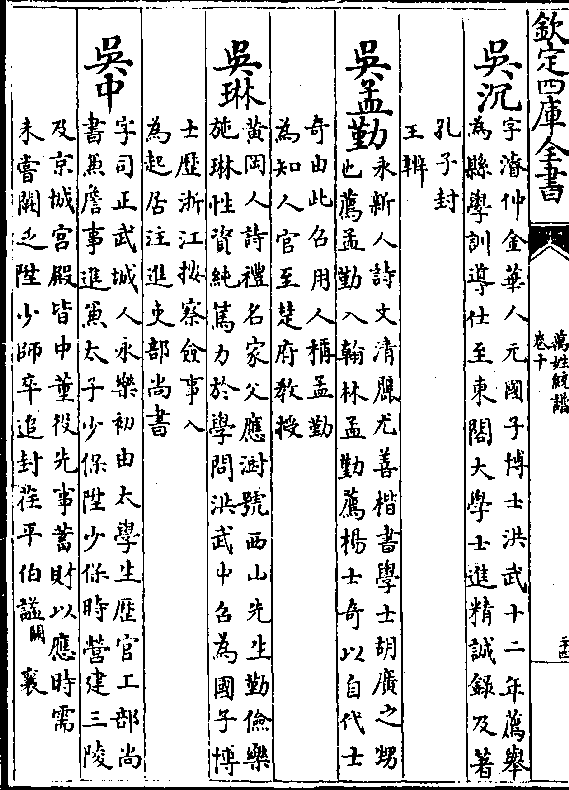 欽定四庫全書
萬姓統譜
卷十
吳沉
字濬仲金華人元國子博士洪武十二年薦舉
為縣學訓導仕至東閣大學士進精誠錄及著
孔子封
王辨
吳孟勤
永新人詩文清贍尤善楷書學士胡廣之甥
也薦孟勤入翰林孟勤薦楊士奇以自代士
奇由此召用人稱孟勤
為知人官至楚府教授
吳琳
黃岡人詩禮名家父應澍號西山先生勤儉樂
施琳性資純篤力於學問洪武中召為國子博
士歷浙江按察僉事入
為起居注進吏部尚書
吳中
字司正武城人永樂初由太學生歷官工部尚
書兼詹事進兼太子少保陞少保時營建三陵
及京城宮殿皆中董役先事蓄財以應時需
未嘗闕乏陞少師卒追封茌平伯謚闕 襄